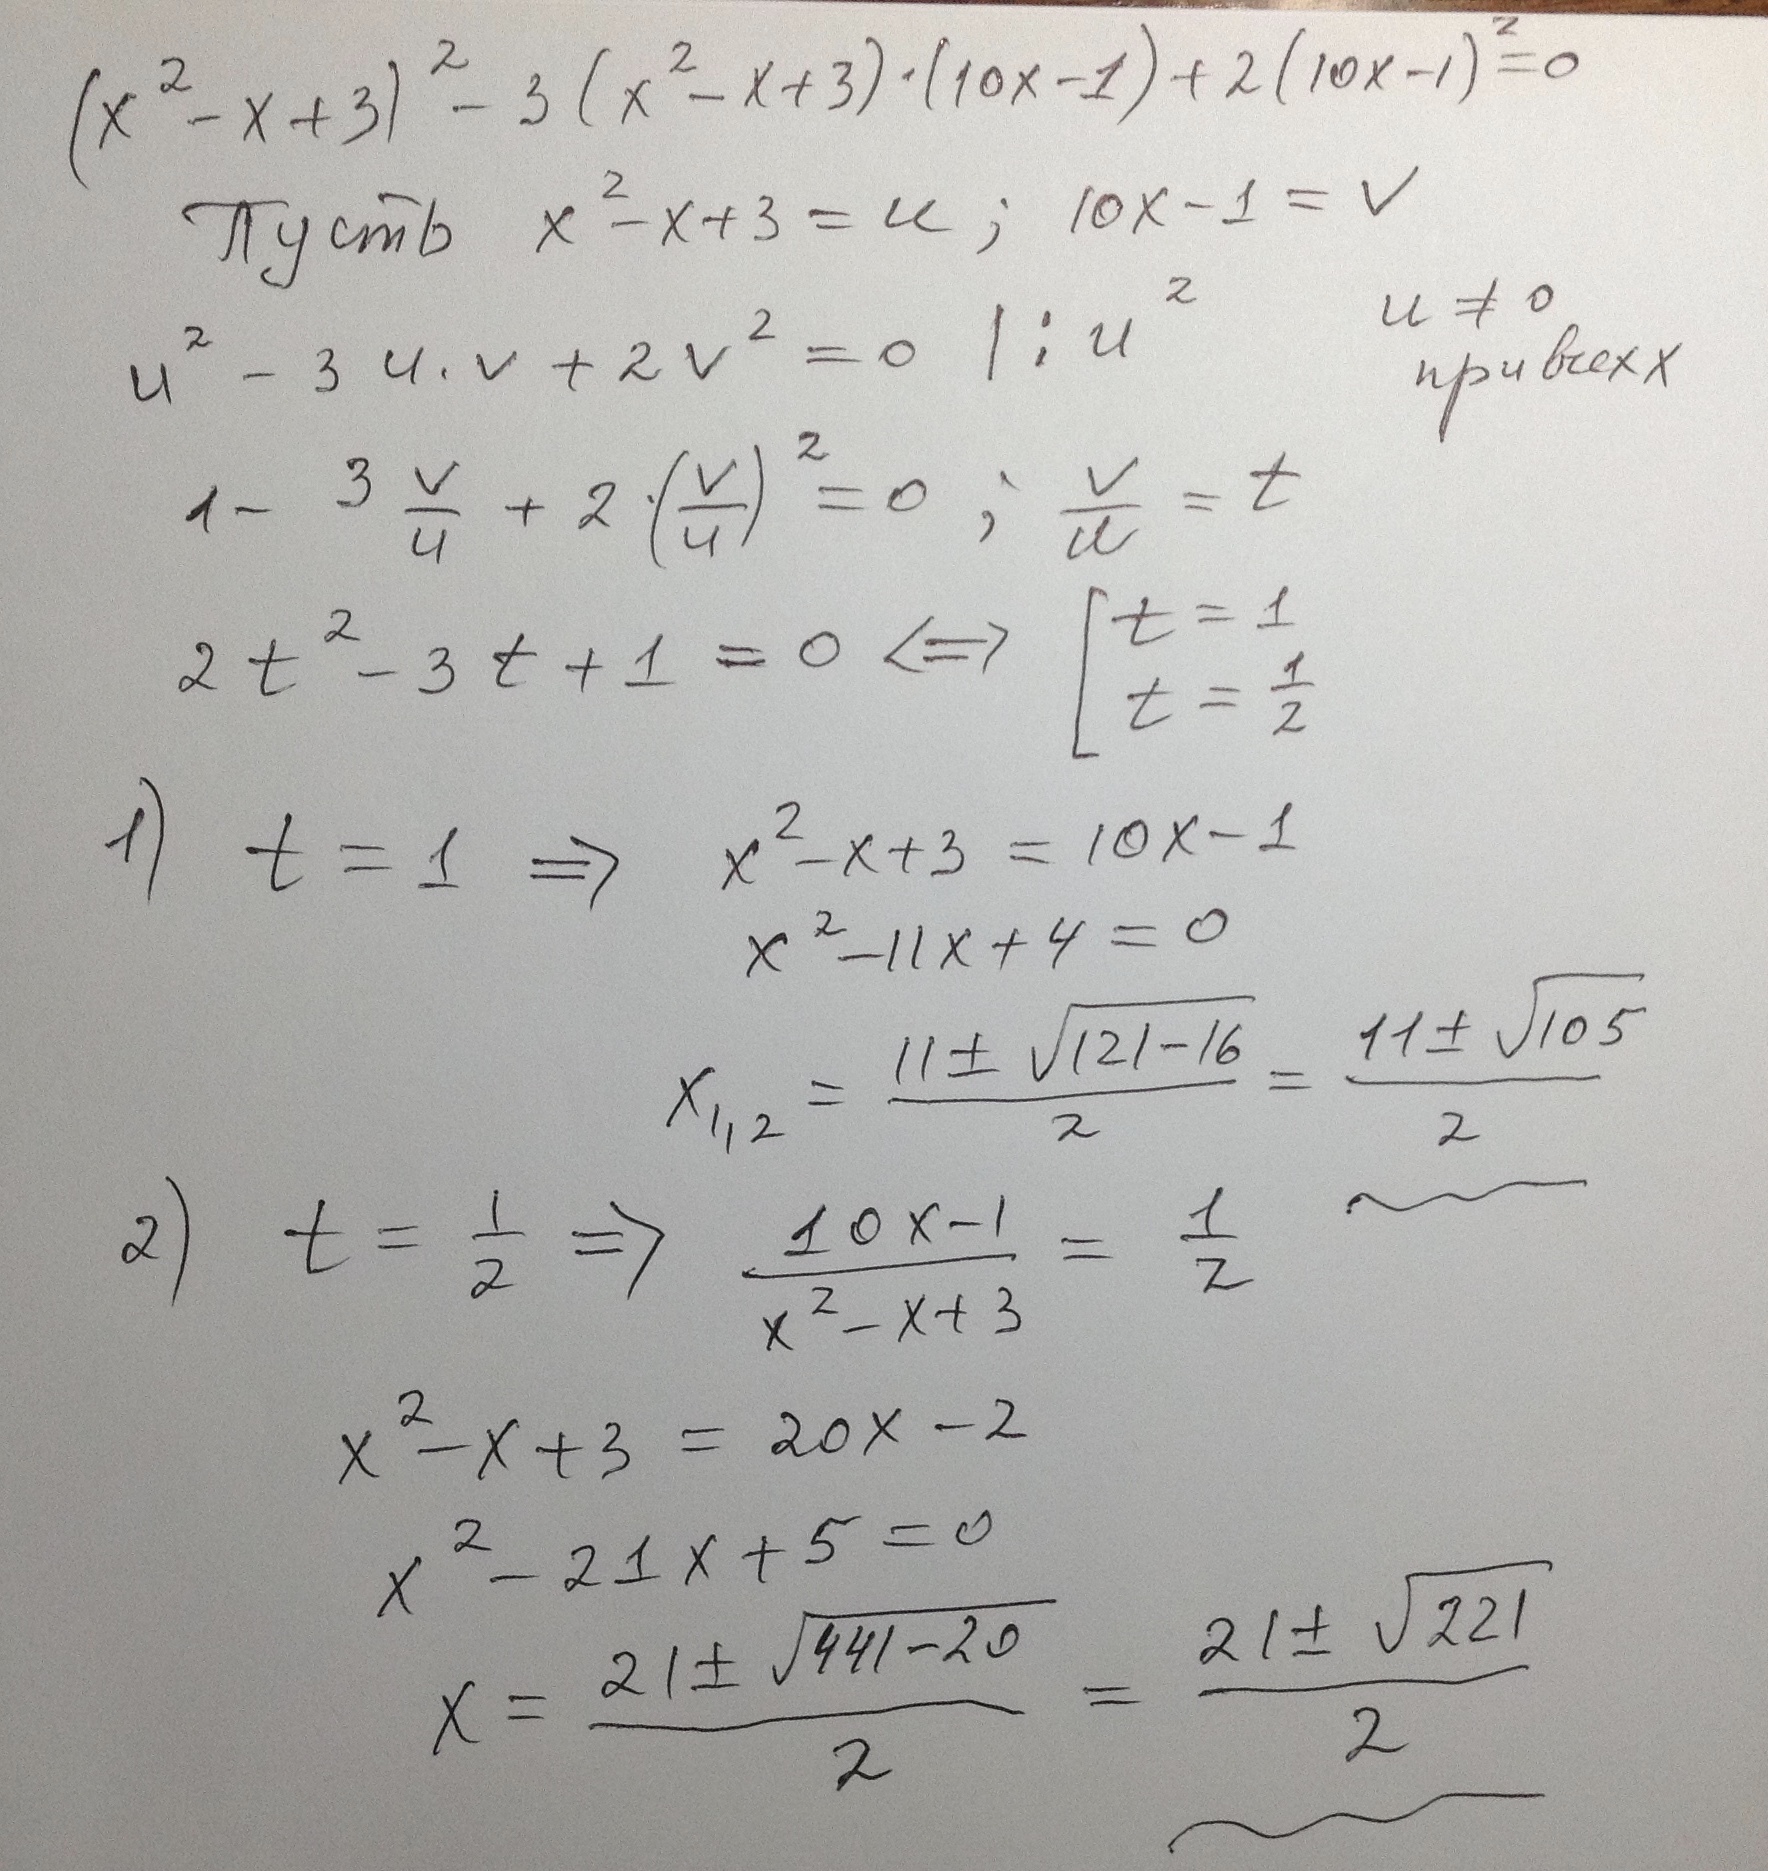 (x²-x+3)²-3(x²-x+3)·(10x-1)+2(10x-1)²=0
Пусть x²-x+3=u; 10x-1=v
u²-3u·v+2v²=0 |:u² u≠0
при всех x
1-3v/u+2·(v/u)²=0; v/u=t
2t²-3t+1=0 <=> [t=1
t=1/2
1) t=1 => x²-x+3=10x-1
x²-11x+4=0
x₁,₂=(11±√(121-16))/2=(11±√105)/2
2) t=1/2 => (10x-1)/(x²-x+3)=1/2
x²-x+3=20x-2
x²-21x+5=0
x=(21±√(441-20))/2=(21±√221)/2